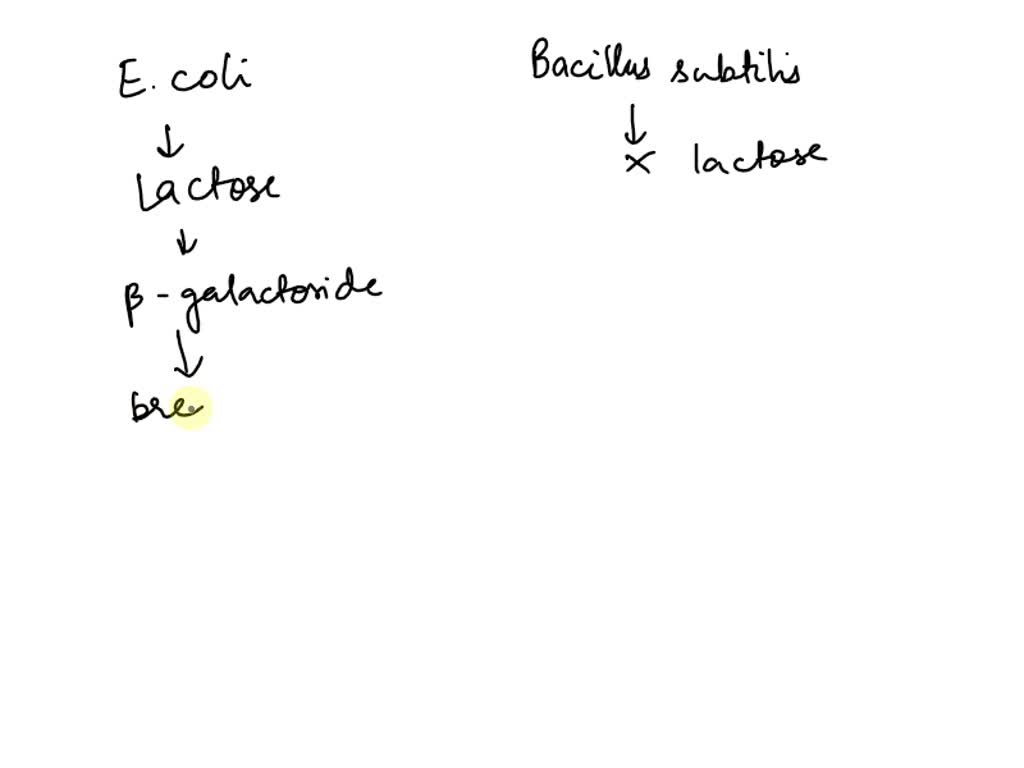 E. coli
↓
Lactose
↓
β-galactoside
↓
bre
Bacillus subtilis
↓
x lactose